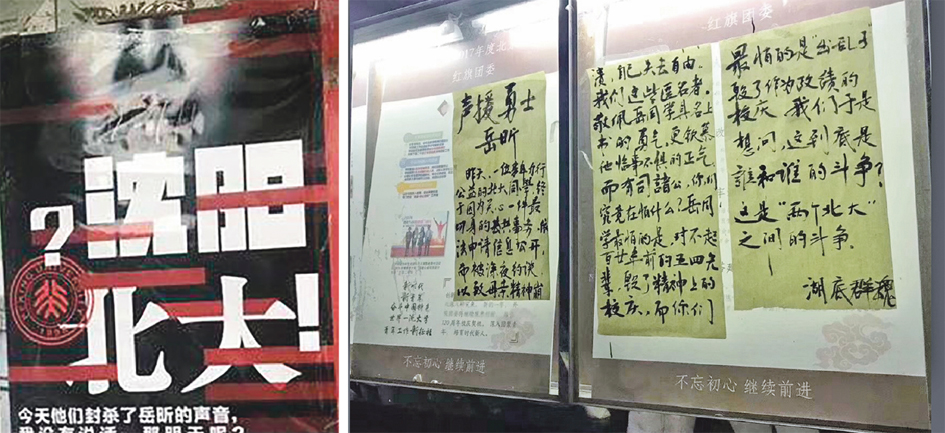 ?
北大!
PEKING UNIVERSITY
今天他们封杀了岳昕的声音,
我没有说话,那明天呢?
2017年度北
红旗团委
声援勇士
岳昕
昨天、一位
公益的北大同学终
于因为关心一件最
切身的
法申请信息公开,
而被深夜约谈
以致母亲精神崩
新时代
世界一流大学
120
不忘初心 继续前进
红旗团委
溃,自己失去自由。
我们这些匿名者,
敬佩岳同学具名上
书的勇气,更钦慕
他临事不惧的正气
而有司諸公,你们
究竟在怕什么?岳同
学最怕的是,对不起
百廿年前的五四先
辈,毁了精神上的
校庆,而你们
最怕的是“出乱子”
毁了作为政绩的
校庆。我们于是
想问,这到底是
谁和谁的斗争?
这是“两个北大”
之间的斗争.
湖底群魂
不忘初心 继续前进